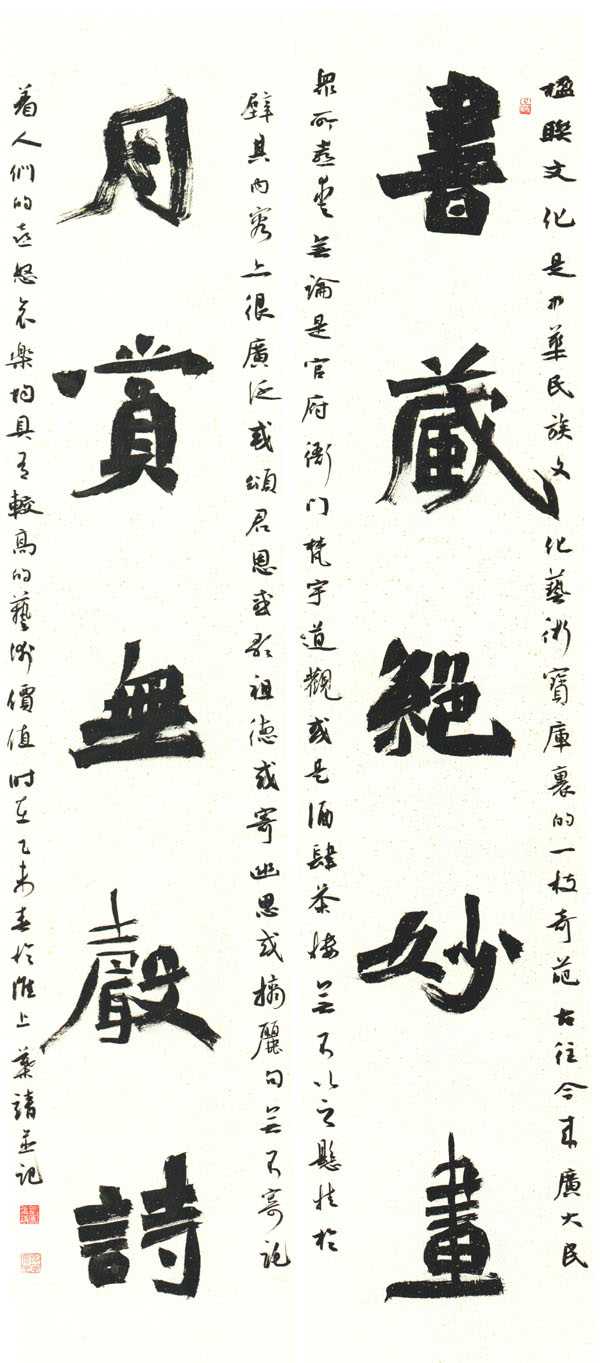 楹聯文化是中華民族文化藝術寶庫裏的一枝奇葩古往今來廣大民
書藏絕妙畫
眾所喜愛無論是官府衙门梵宇道觀或是酒肆茶樓無不以之懸掛於
壁其内容上很廣泛或頌君恩或歌祖德或寄幽思或摘麗句無不寄託
月賞無聲詩
着人們的喜怒哀樂均具有較高的藝術價值时在乙未春於淮上並記